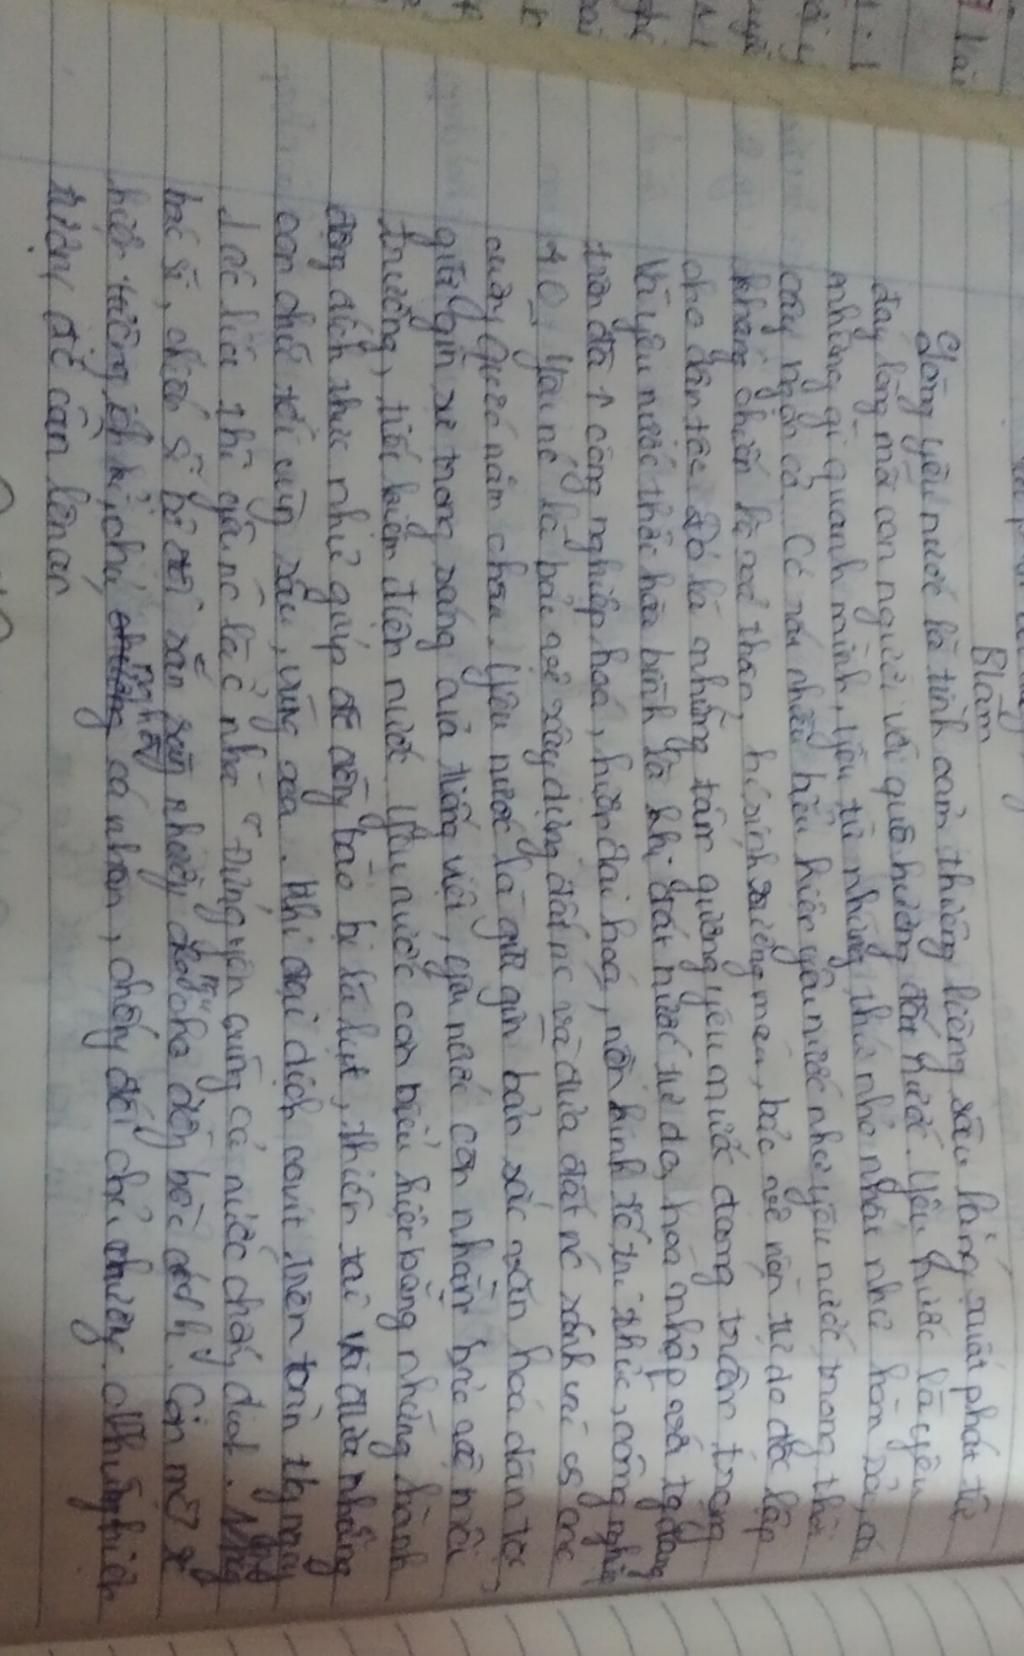 Bài làm
Lòng yêu nước là tình cảm thiêng liêng sâu lắng xuất phát từ
đáy lòng mỗi con người với quê hương đất nước. Yêu nước là yêu
những gì quanh mình, yêu từ những thứ nhỏ nhất như hòn sỏi,
cây ngọn cỏ. Có rất nhiều biểu hiện yêu nước như yêu nước trong thời
kháng chiến là xả thân, hi sinh xương máu, bảo vệ nền tự do độc lập
cho dân tộc. Đó là những tấm gương yêu nước đáng trân trọng
Và yêu nước thời hòa bình là khi đất nước tự do, hòa nhập với tg đang
trên đà công nghiệp hoá, hiện đại hoá, nền kinh tế tri thức, công nghiệp
4.0, yêu nc là bảo vệ xây dựng đất nc và đưa đất nc sánh vai vs các
cường quốc năm châu. Yêu nước là giữ gìn bản sắc văn hoá dân tộc,
giữ gìn sự trong sáng của tiếng việt, yêu nước còn nhằm bảo vệ môi
trường, tiết kiệm điện nước. Yêu nước còn biểu hiện bằng những hành
động đích thực như giúp đỡ đồng bào bị lũ lụt, thiên tai và đưa những
con chữ tới vùng sâu, vùng xa. Khi đại dịch covid trên toàn tg
lúc thì yêu nc là ở nhà "Đứng yên cũng cả nước chống dịch.
bác sĩ, chiến sĩ bộ đội sẵn sàng nhường cho đồng bào cách ly. Còn một số
hiện tượng ích kỉ, chủ nghĩa cá nhân, chống đối chủ trương. Những hiện
tượng đó cần lên án